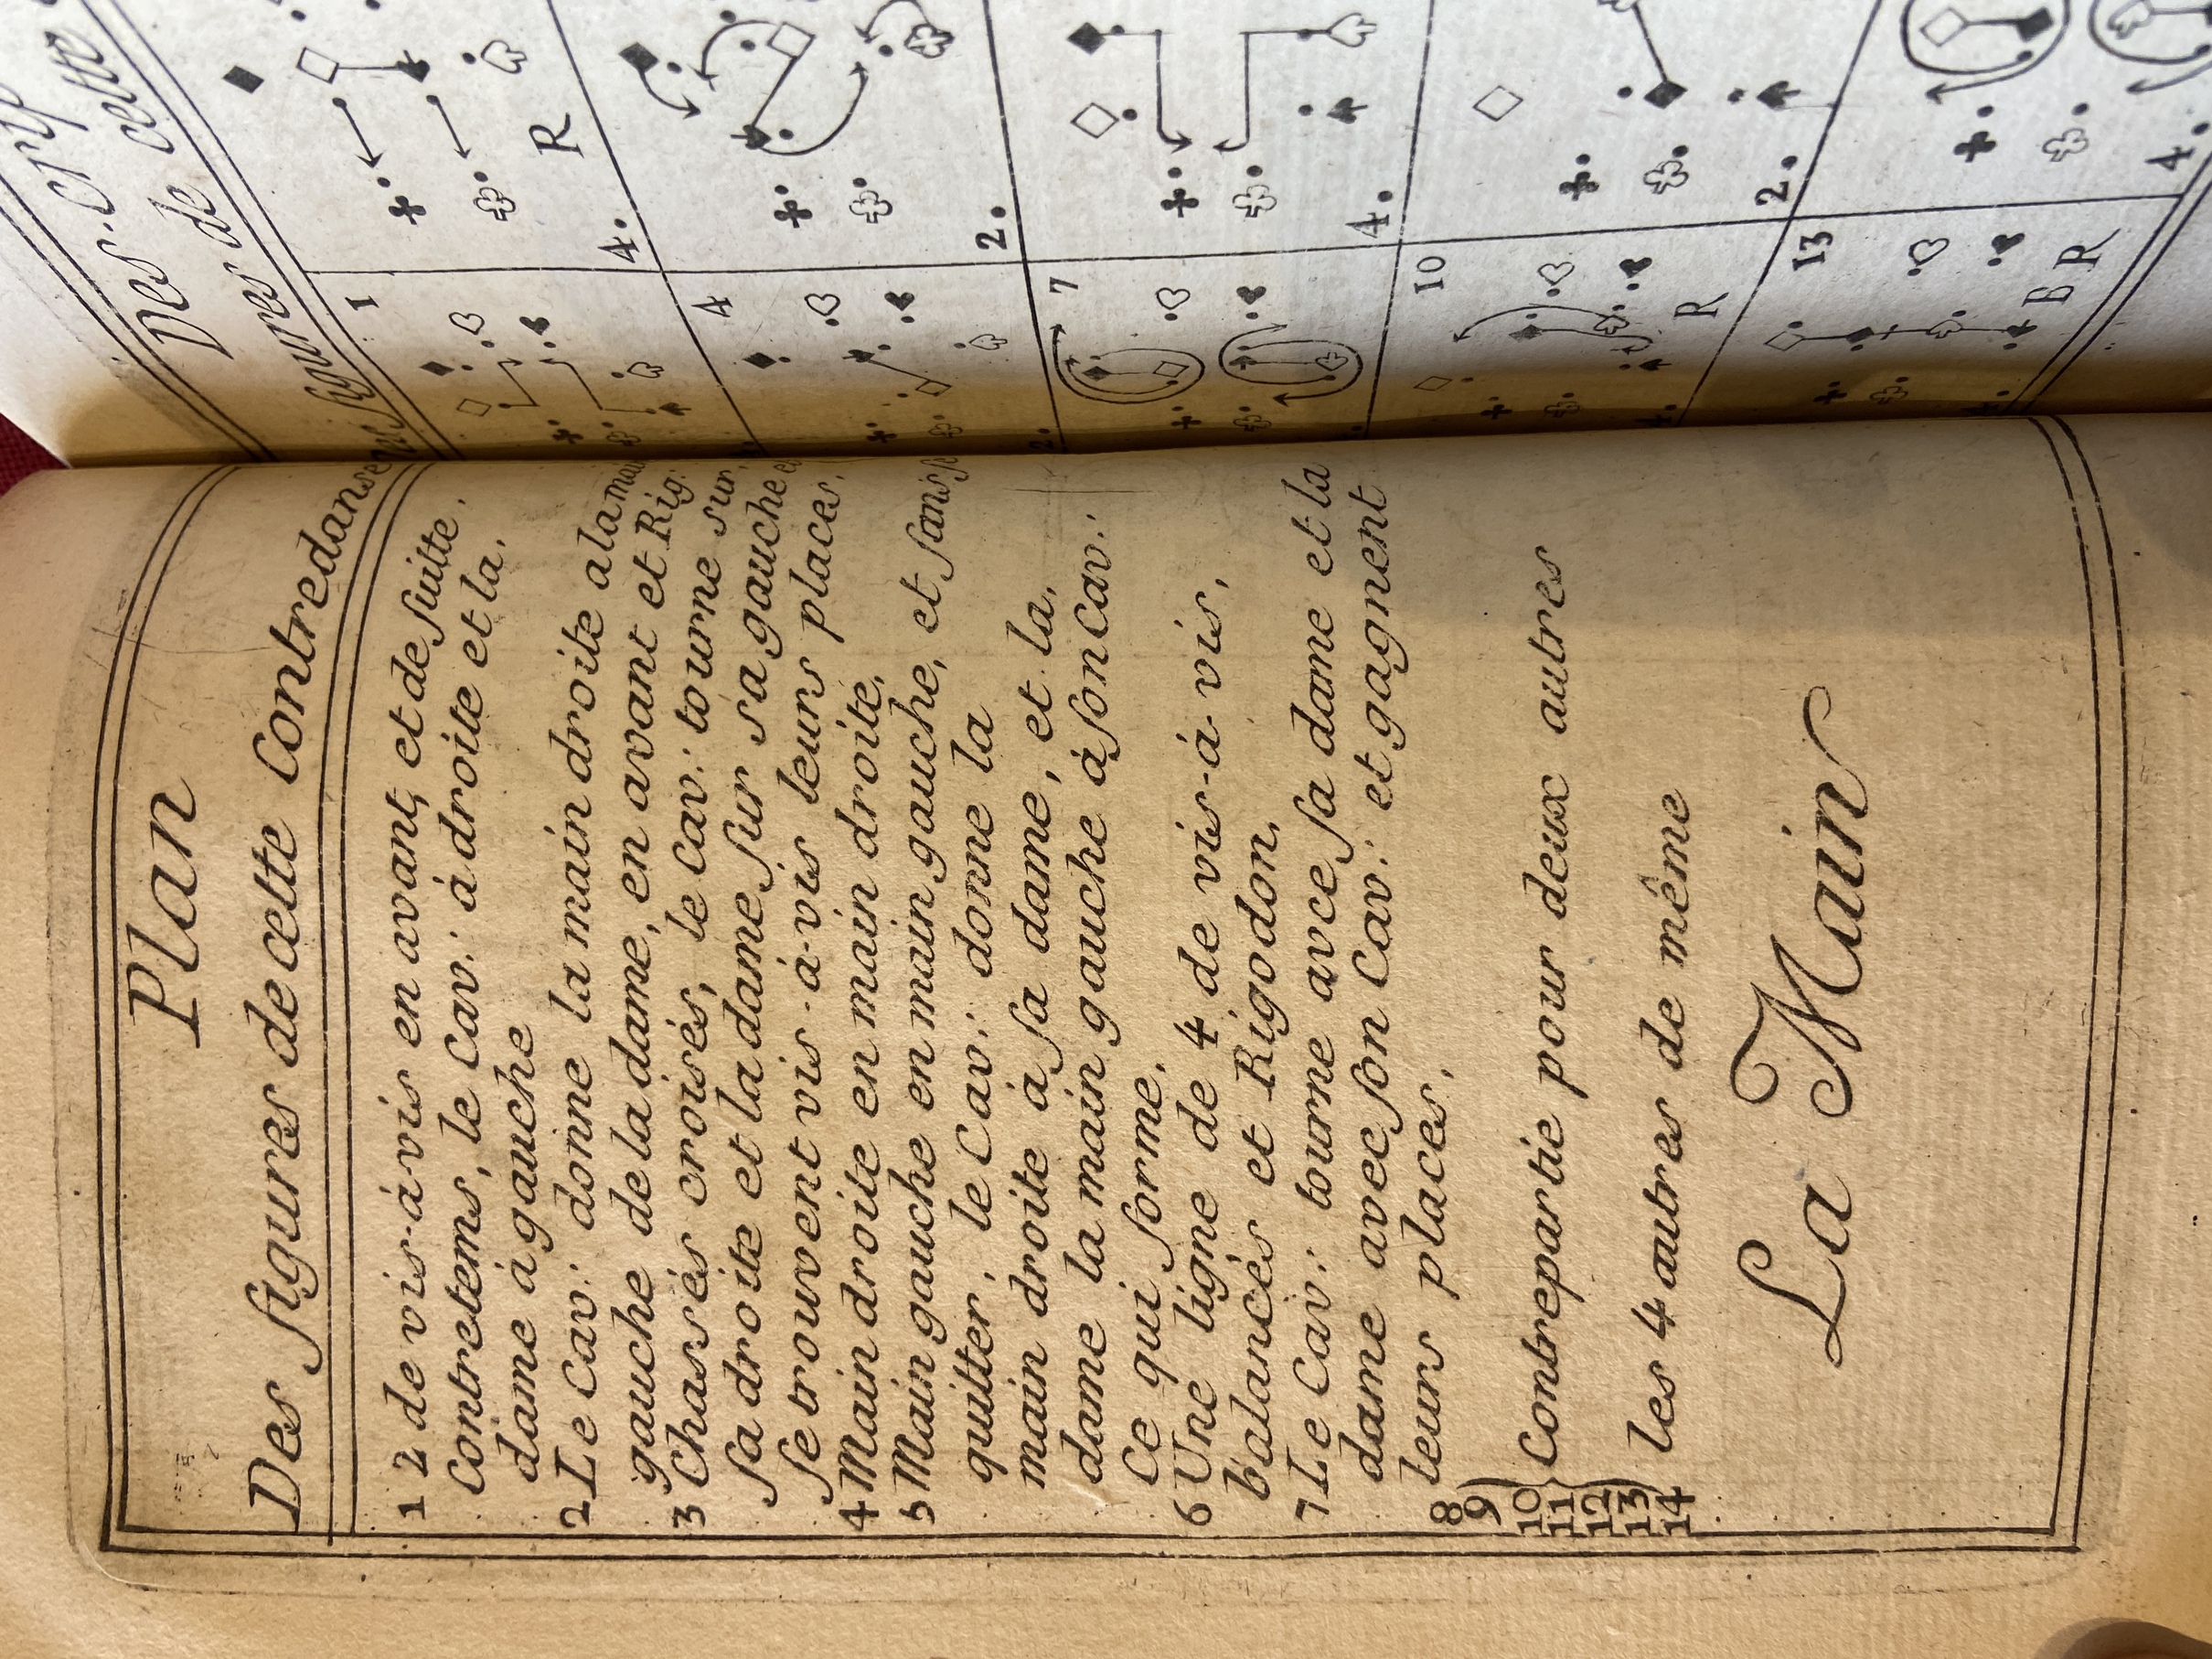 Plan
Des figures de cette Contredanse
1 2 de vis-á-vis en avant, et de suitte.
Contretems, le Cav: á droite et la.
dame á gauche
2 Le Cav: donne la main droite a la main
gauche de la dame, en avant et Rig:
3 Chassés croisés, le Cav: tourne sur.
sa droite et la dame sur sa gauche et
se trouvent vis-á-vis leurs places.
4 Main droite en main droite.
5 Main gauche en main gauche, et sans se
quitter, le Cav: donne la
main droite á sa dame, et la.
dame la main gauche á son Cav:
Ce qui forme.
6 Une ligne de 4 de vis-á-vis,
balancés et Rigodon,
7 Le Cav: tourne avce sa dame et la
dame avec son Cav: et gagnent
leurs places.
8
9
10 Contrepartie pour deux autres
11
12
13 les 4 autres de même
14
La Main
Des
figures de cette
1
R
4.
4
2.
7
4.
10
R
2.
13
B R
4.